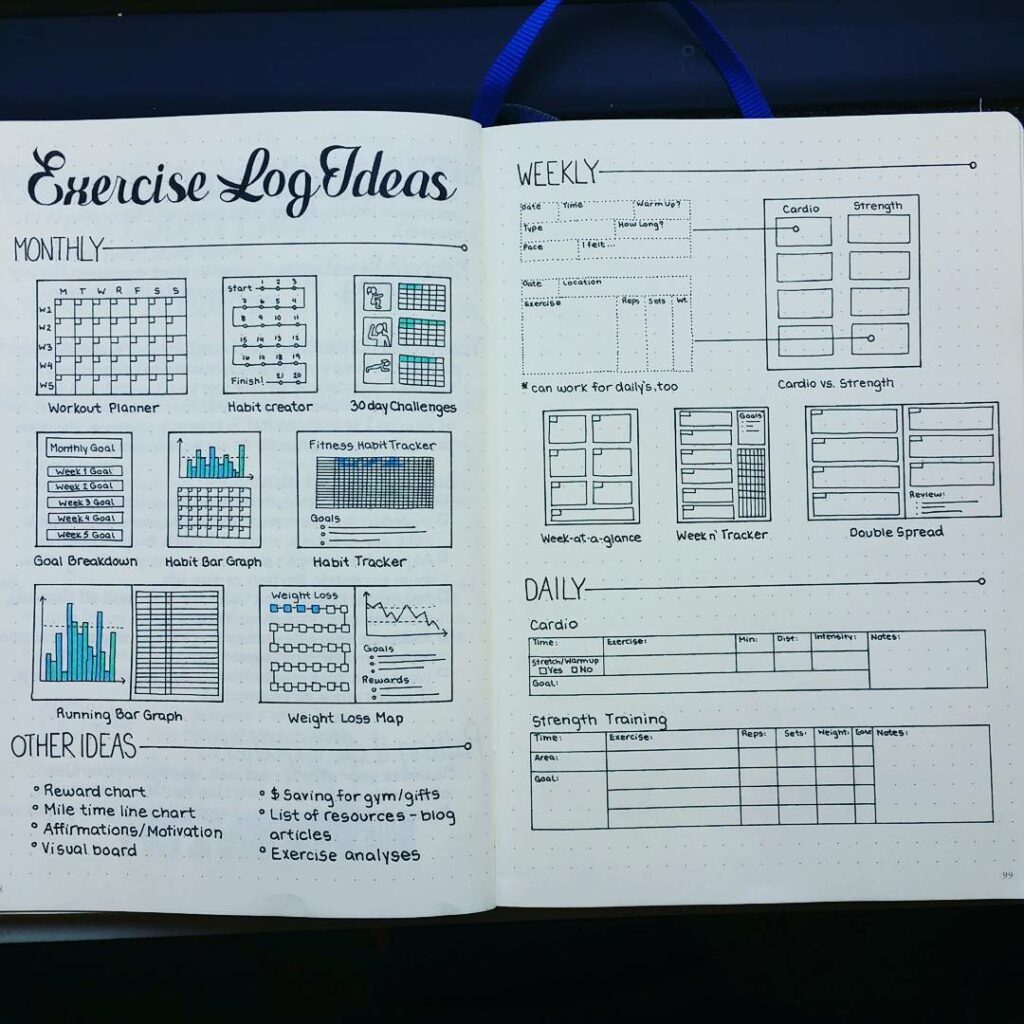 Exercise Log Ideas
MONTHLY
M T W R F S S
W1
W2
W3
W4
W5
Workout Planner
Start 1 2 3
7 6 5 4
8 9 10 11
15 14 13 12
16 17 18 19
Finish! 21 20
Habit creator
30 day Challenges
Monthly Goal
Week 1 Goal
Week 2 Goal
Week 3 Goal
Week 4 Goal
Week 5 Goal
Goal Breakdown
Habit Bar Graph
Fitness Habit Tracker
Goals
Habit Tracker
Running Bar Graph
Weight Loss
Goals
Rewards
Weight Loss Map
OTHER IDEAS
° Reward chart
° Mile time line chart
° Affirmations/Motivation
° Visual board
° $ Saving for gym/gifts
° List of resources - blog
articles
° Exercise analyses
WEEKLY
Date Time Warm up?
Type How Long?
Pace I felt...
Date Location
Exercise Reps Sets Wt.
* can work for daily's, too
Cardio Strength
Cardio vs. Strength
Week-at-a-glance
Goals
Week n' Tracker
Review:
Double Spread
DAILY
Cardio
Time: Exercise: Min: Dist: Intensity: Notes:
Stretch/Warmup
Yes No
Goal:
Strength Training
Time: Exercise: Reps: Sets: Weight: Notes:
Area:
Goal:
99